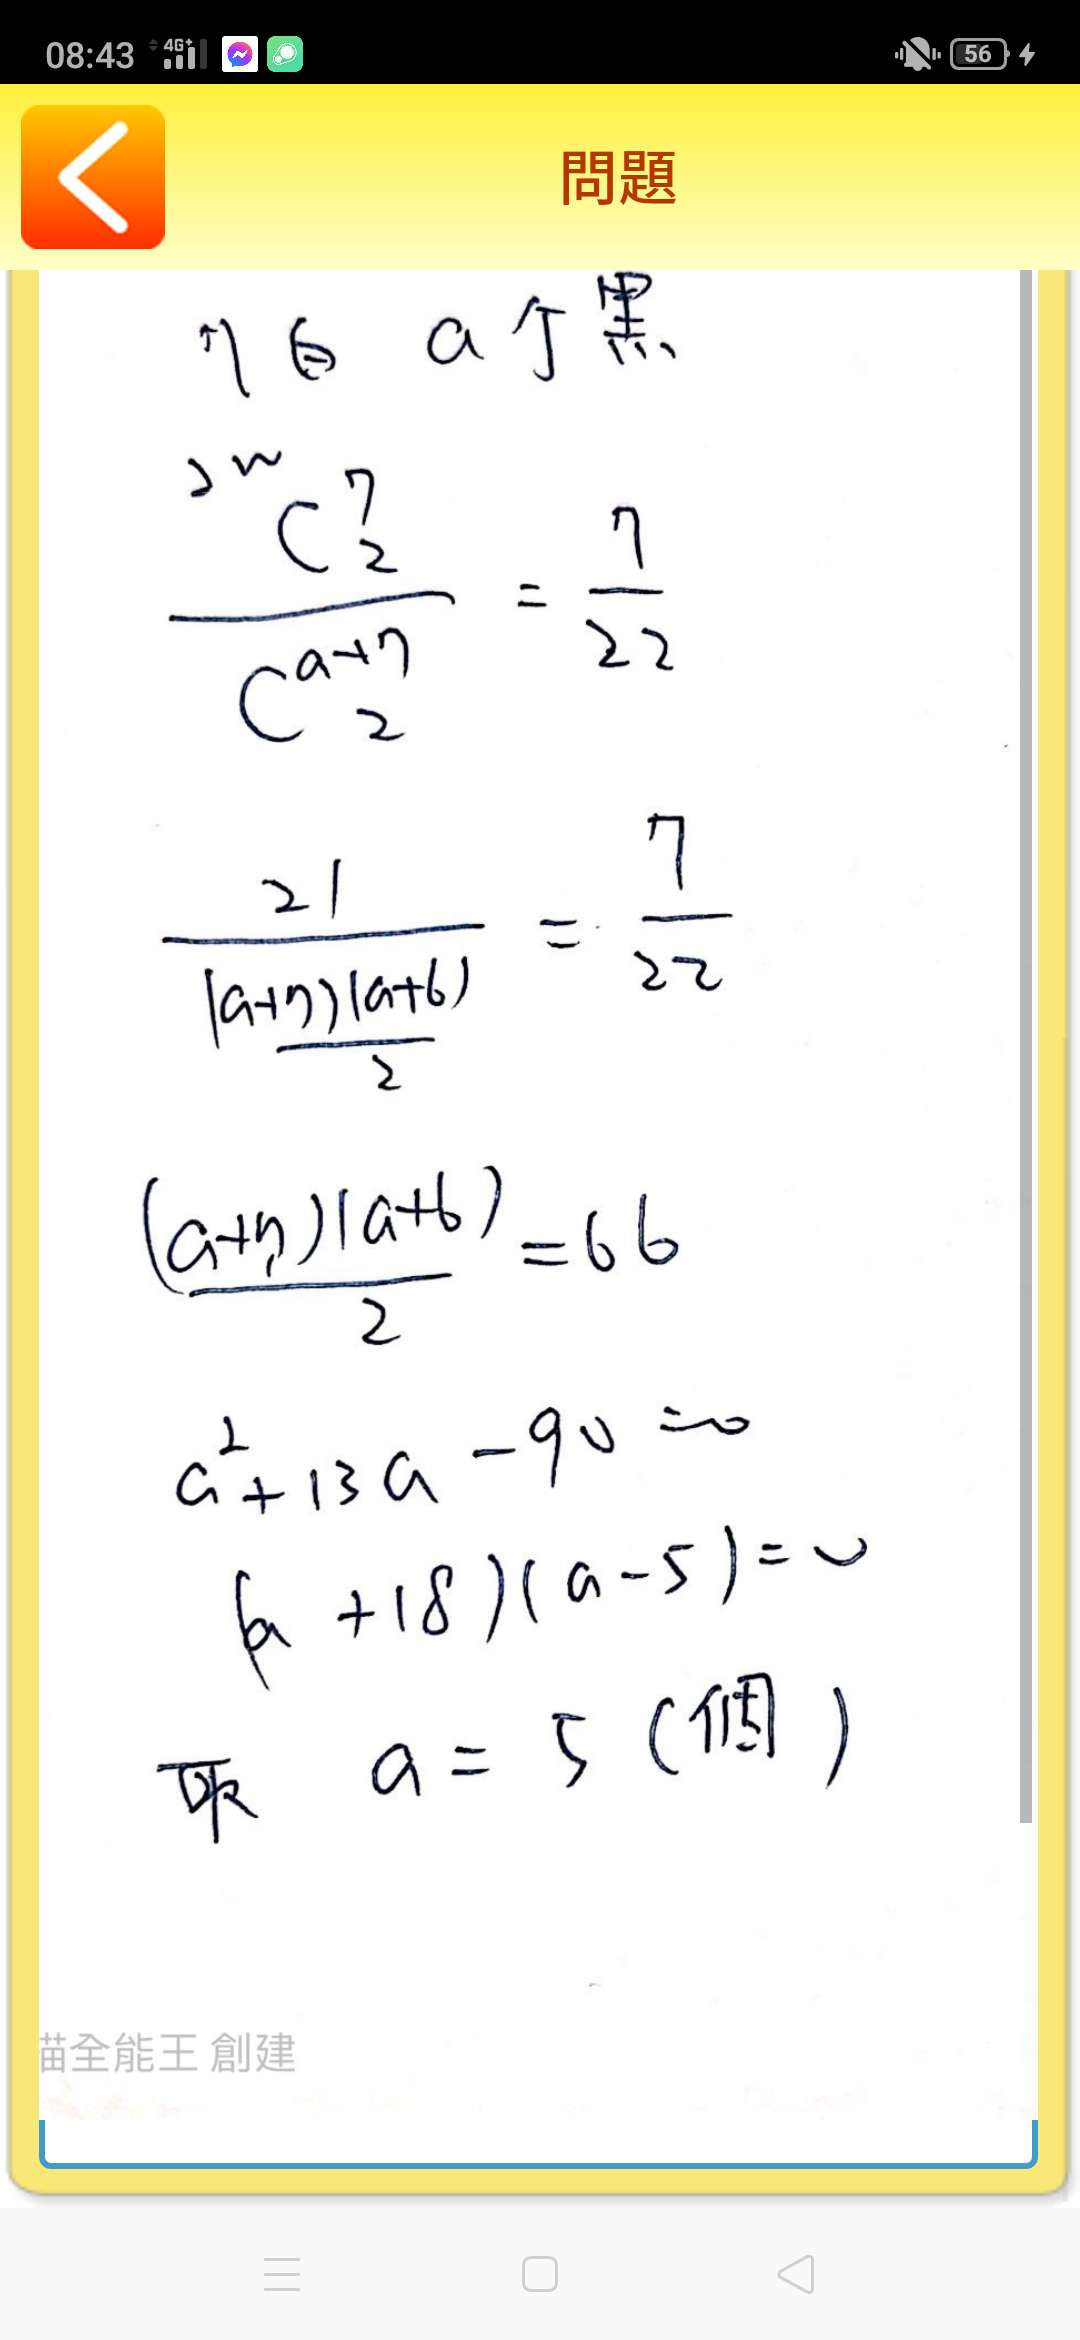 08:43 4G+ 56
問題
7白 a个黑
2w
C⁷₂ / Cᵃ⁺⁷₂ = 7/22
21 / ((a+7)(a+6)/2) = 7/22
(a+7)(a+6)/2 = 66
a²+13a-90=0
(a+18)(a-5)=0
取 a=5(個)
描全能王 創建